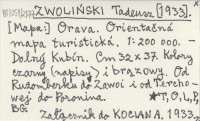 ZWOLIŃSKI Tadeusz [1933].
[Mapa:] Orava. Orientačná
mapa turistická, 1:200 000. -
Dolný Kubín. Cm 32 x 37 Kolory
czarny (napisy) i brązowy. Od
Rużomberku do Zawoi i od Tercho-
wej do Poronina. *T, O, L, P,
BG
Załącznik do KOCIANA. 1933.